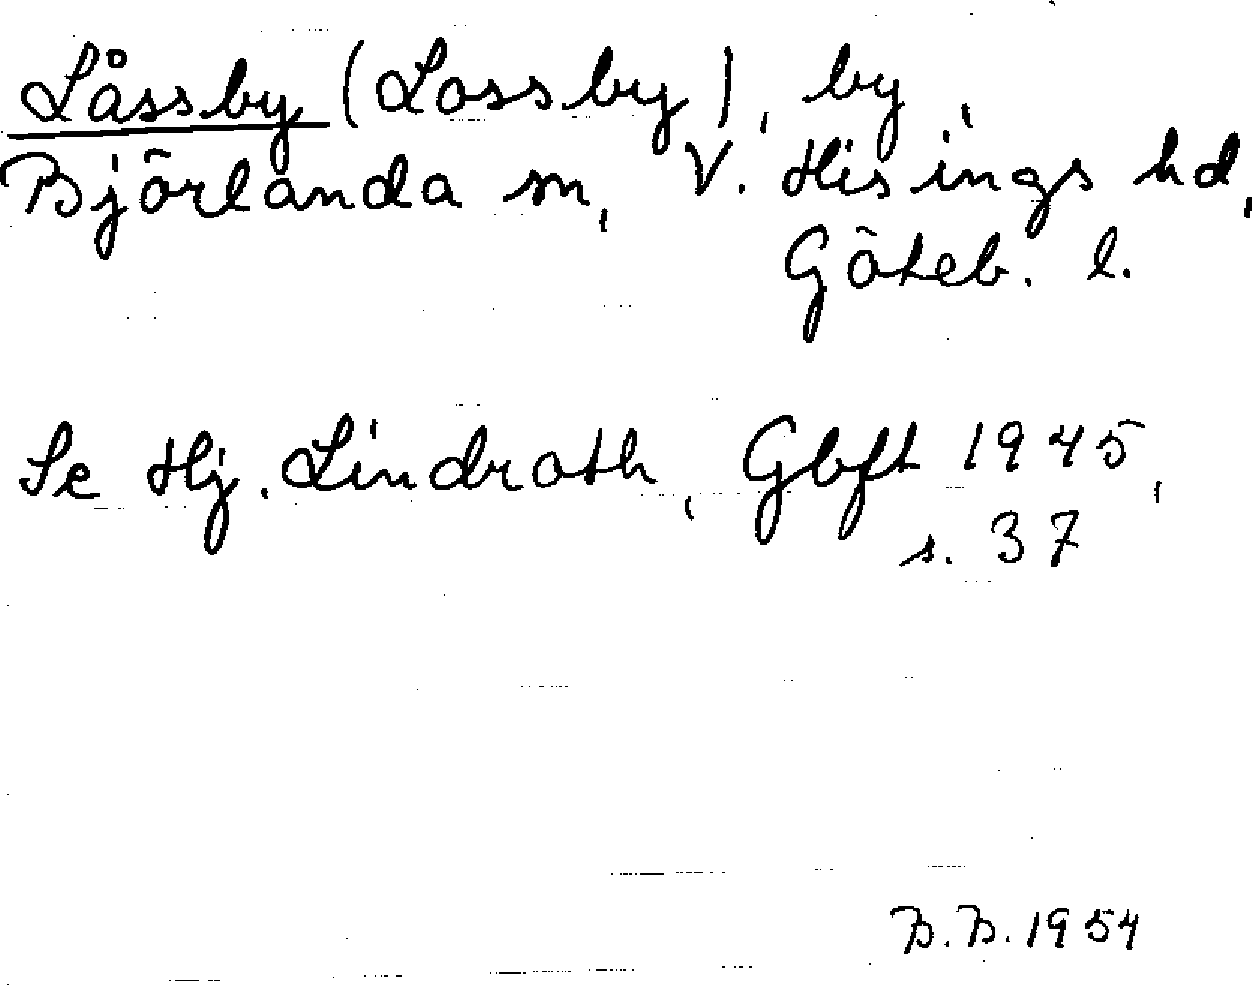 Låssby (Lossby), by i
Björlanda sn, V. Hisings hd,
Göteb. l.
Se Hj. Lindroth, Gbft 1945,
s. 37
B.B. 1954